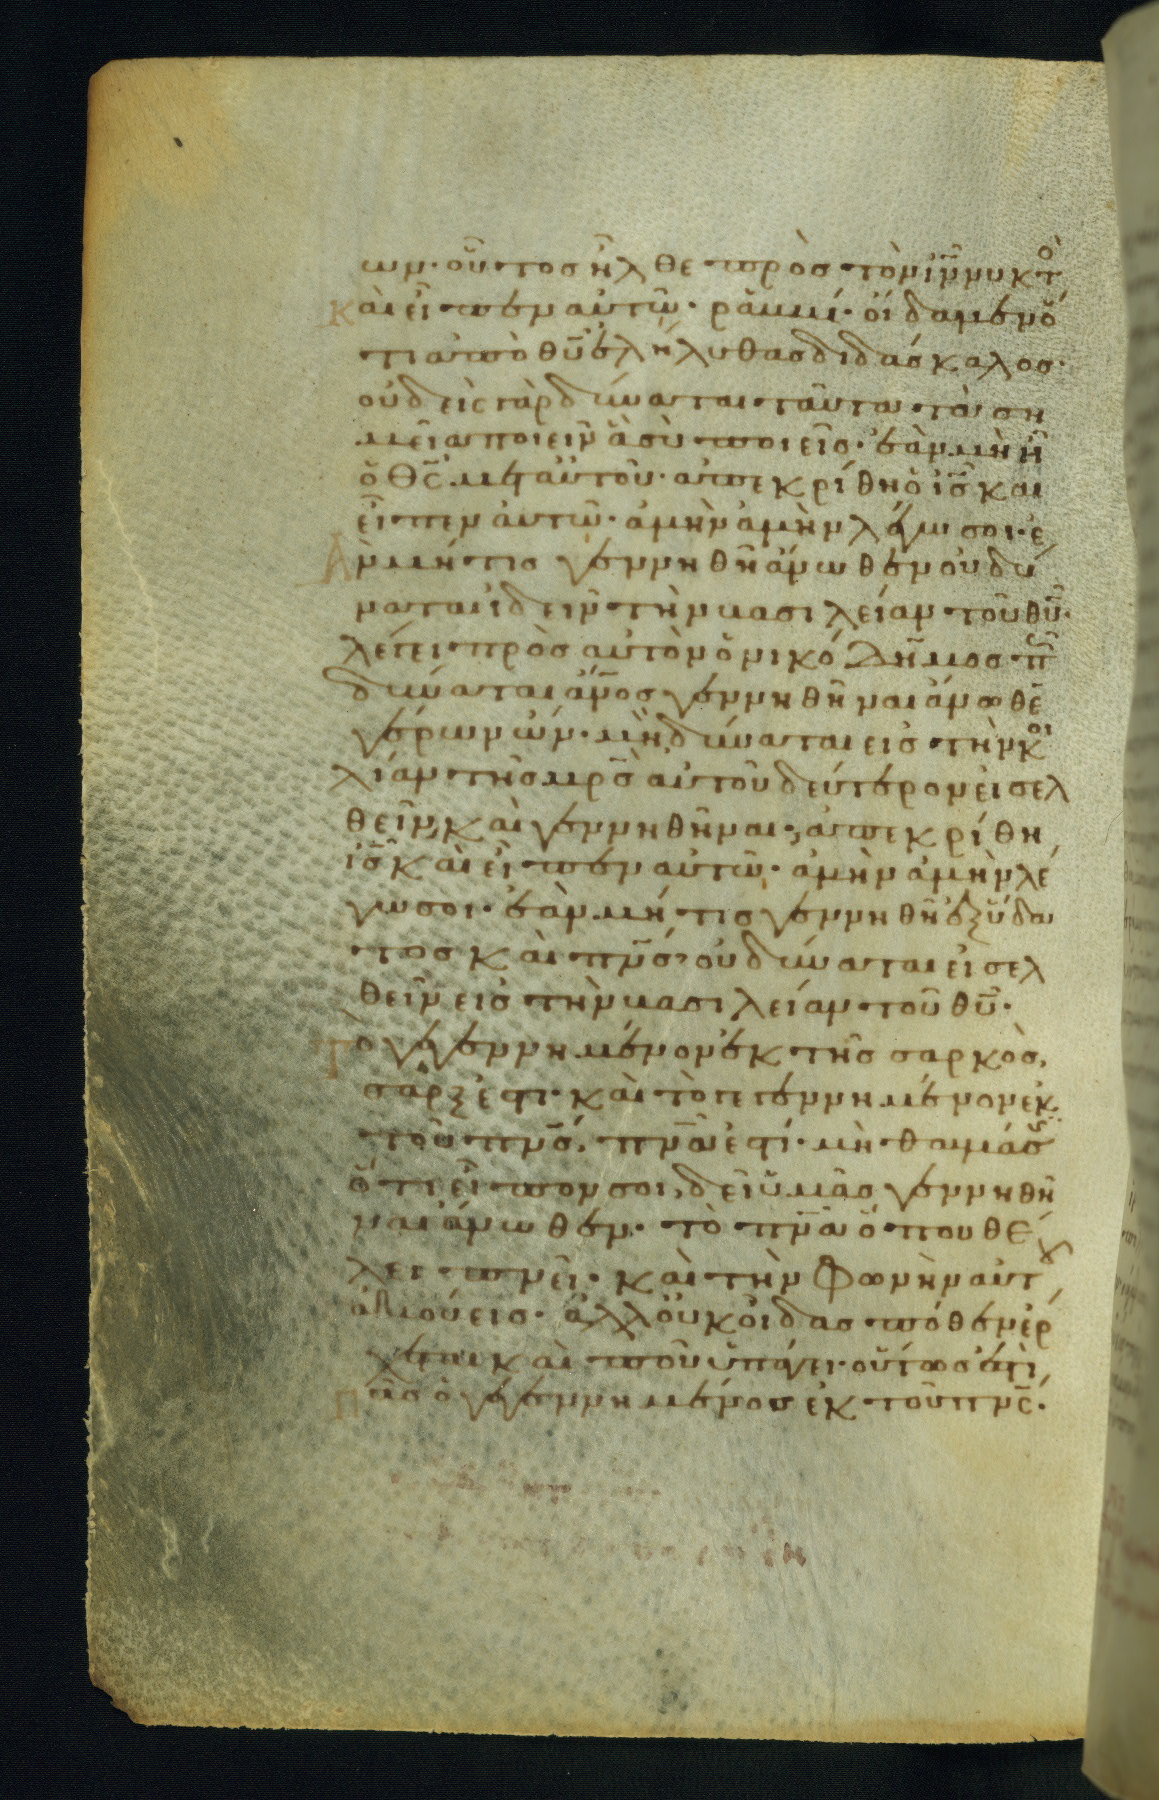 ων· οὗτος ἦλθε πρὸς τὸν ἰν̅ νυκτὸ
καὶ εἶπεν αὐτῶ· ῥαββί· οἴδαμεν ὅ
τι ἀπὸ θυ̅ ἐλήλυθας διδάσκαλος·
οὐδεὶς γὰρ δύναται ταῦτα τὰ ση
μεῖα ποιεῖν ἃ σὺ ποιεῖς· ἐὰν μὴ ἦ
ὁ θς̅ μετ αὐτοῦ· ἀπεκρίθη ὁ ις̅ και
εἶπεν αὐτῶ· ἀμὴν ἀμὴν λέγω σοι· ἐ
ὰν μή τις γεννηθῆ ἄνωθεν οὐ δύ
ναται ἰδεῖν τὴν βασιλείαν τοῦ θυ̅·
λέγει πρὸς αὐτὸν ὁ νικόδημος· π
δύναται ἄνο̅ς γεννηθῆναι ἄνωθε̅
γέρων ὤν· μὴ δύναται εἰς τὴν κοι
λίαν τῆς μρ̅ς αὐτοῦ δεύτερον εἰσελ
θεῖν, καὶ γεννηθῆναι; ἀπεκρίθη
ις̅ καὶ εἶπεν αὐτῶ· ἀμὴν ἀμὴν λέ
γω σοι· ἐὰν μή τις γεννηθῆ ἐξ ὕδα
τος καὶ πν̅ς· οὐ δύναται εἰσελ
θεῖν εἰς τὴν βασιλείαν τοῦ θυ̅·
Τὸ γεγεννημένον ἐκ τῆς σαρκὸς,
σάρξ ἐστι· καὶ τὸ γεγεννημένον ἐκ
τοῦ πν̅ς, πν̅α ἐστί· μὴ θαυμάσ
ὅτι εἶπον σοι, δεῖ ὑμᾶς γεννηθῆ
ναι ἄνωθεν· τὸ πν̅α ὅπου θέ
λει πνεῖ· καὶ τὴν φωνὴν αὐτ
ἀκούεις· ἀλλ οὐκ οἶδας πόθεν ἔρ
χεται καὶ ποῦ ὑπάγει· οὕτως ἐστὶ
πᾶς ὁ γεγεννημένος ἐκ τοῦ πν̅ς·